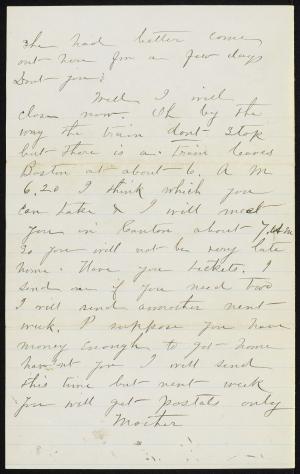 she had better come
out here for a few days
Dont you?
Well I will
close now. Oh by the
way the train dont stop
but there is a train leaves
Boston at about 6. A M
6.20 I think which you
can take & I will meet
you in Canton about 7 AM
So you will not be very late
home. Have you tickets. I
send one if you need two
I will send another next
week. I suppose you have
money enough to get home
havent you I will send
this time but next week
you will get postals only
Mother